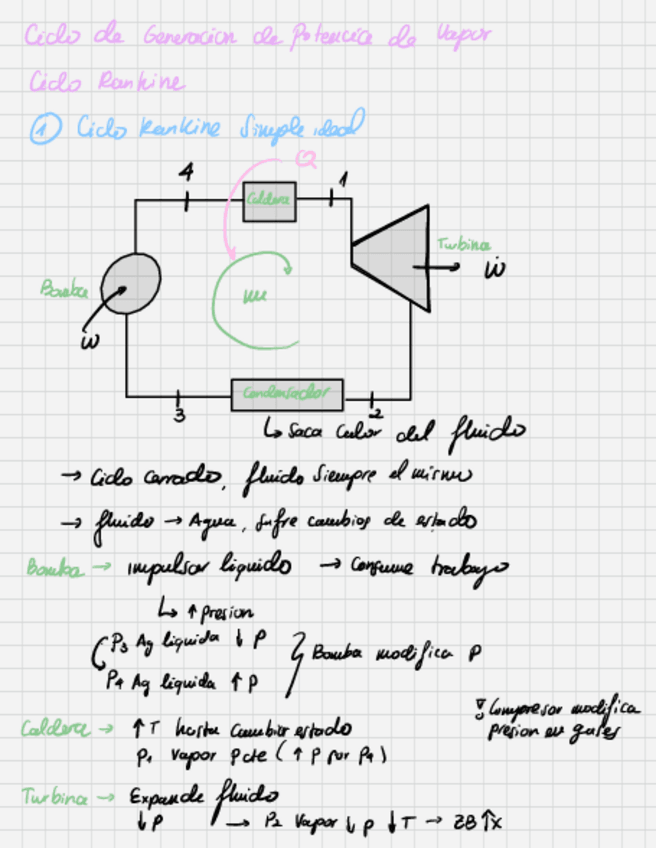 Ciclo de Generacion de Potencia de Vapor
Ciclo Rankine
① Ciclo Rankine Simple ideal
Q
4
Caldera
1
Turbina
ẇ
Bomba
ṁ
ẇ
Condensador
3
2
↳ Saca calor del fluido
→ Ciclo cerrado, fluido siempre el mismo
→ fluido → Agua, sufre cambios de estado
Bomba → impulsar liquido → Consume trabajo
↳ ↑ presion
P3 Ag liquida ↓ P
Bomba modifica P
P4 Ag liquida ↑ P
Compresor modifica
presion en gases
Caldera → ↑ T hasta cambiar estado
P1 Vapor Pcte (↑ P por P4)
Turbina → Expande fluido
↓ P → P2 Vapor ↓ P ↓ T → ZB ↑x